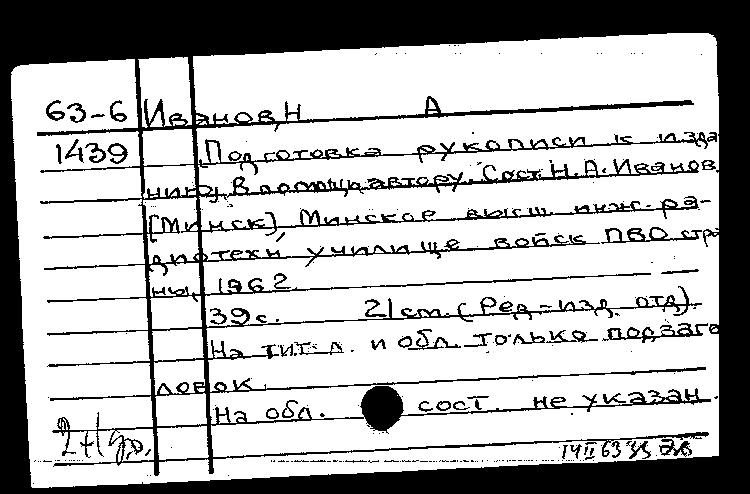 63-6 Иванов, Н А
1439 Подготовка рукописи к изда
нию. В помощь автору. Сост. Н. А. Иванов.
[Минск], Минское высш. инж.-ра-
диотехн. училище войск ПВО стра
ны, 1962.
39 с. 21 см. (Ред.-изд. отд).
На тит. л. и обл. только подзаго
ловок.
На обл. сост. не указан.
14 II 63